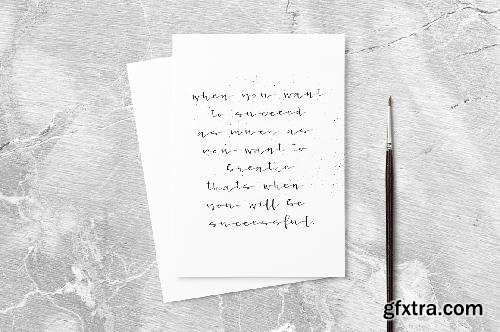 when you want
to succeed
as much as
you want to
breathe
thats when
you will be
successful.
gfxtra.com